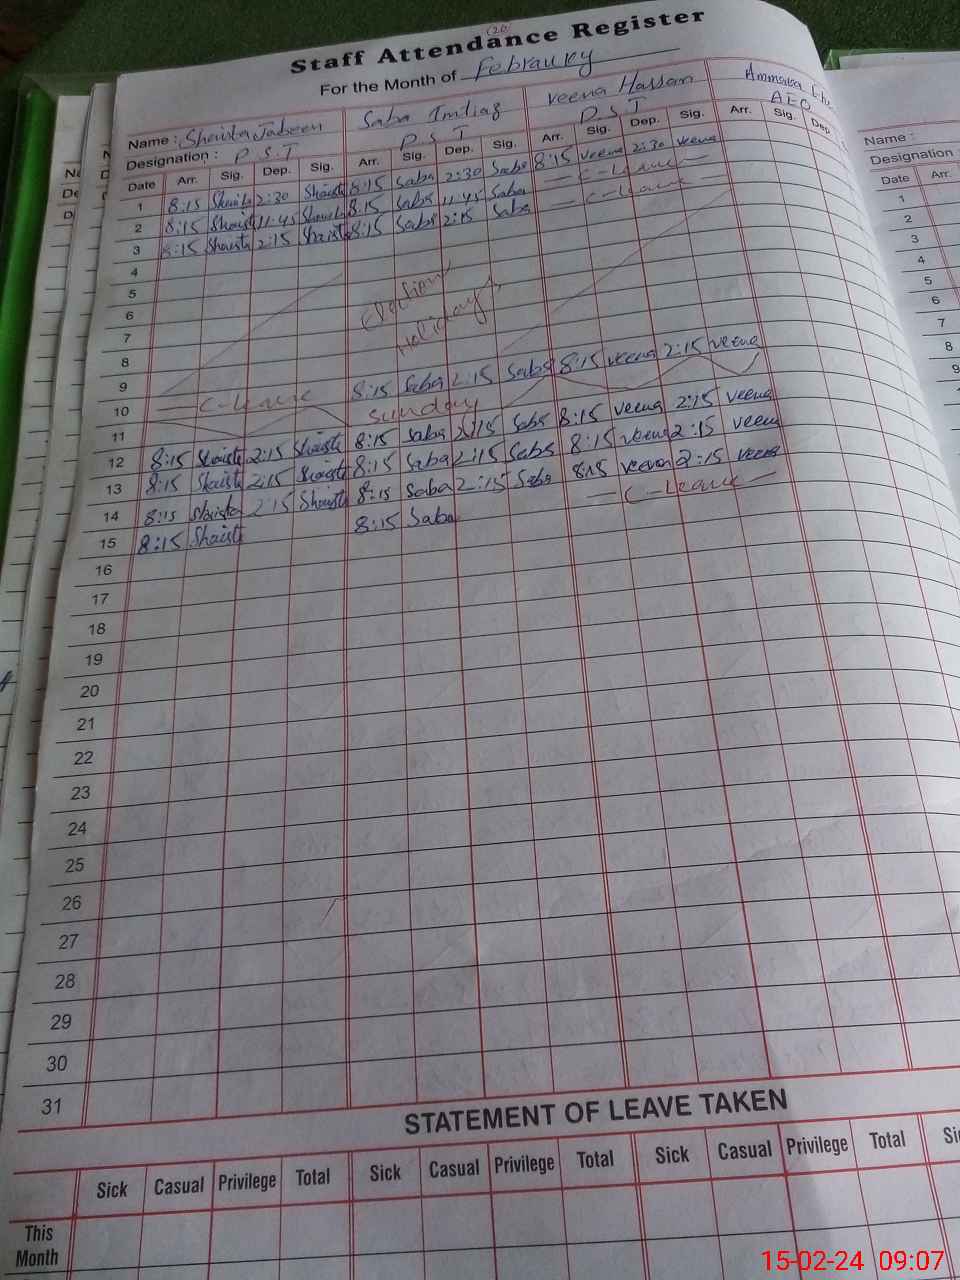 (20)
Staff Attendance Register
For the Month of Febraury
Name : Shaista Jabeen Saba Imtiaz Veena Hassan
Designation : P.S.T P S T P.S.T AEO
Date Arr. Sig. Dep. Sig. Arr. Sig. Dep. Sig. Arr. Sig. Dep. Sig. Arr. Sig. Dep
1 8:15 Shaista 2:30 Shaista 8:15 Saba 2:30 Saba 8:15 veena 2:30 veena
2 8:15 Shaista 11:45 Shaista 8:15 Saba 11:45 Saba — C-leave —
3 8:15 Shaista 2:15 Shaista 8:15 Saba 2:15 Saba — C-leave —
4
5
6
7 Holidays
8
9 — C-leave 8:15 Saba 2:15 Saba 8:15 veena 2:15 veena
10 Sunday
11
12 8:15 Shaista 2:15 Shaista 8:15 Saba 2:15 Saba 8:15 veena 2:15 veena
13 8:15 Shaista 2:15 Shaista 8:15 Saba 2:15 Saba 8:15 veena 2:15 veena
14 8:15 Shaista 2:15 Shaista 8:15 Saba 2:15 Saba 8:15 veena 2:15 veena
15 8:15 Shaista 8:15 Saba — C-leave —
16
17
18
19
20
21
22
23
24
25
26
27
28
29
30
31
STATEMENT OF LEAVE TAKEN
Sick Casual Privilege Total Sick Casual Privilege Total Sick Casual Privilege Total
This
Month
Name :
Designation :
Date Arr.
1
2
3
4
5
6
7
8
9
15-02-24 09:07